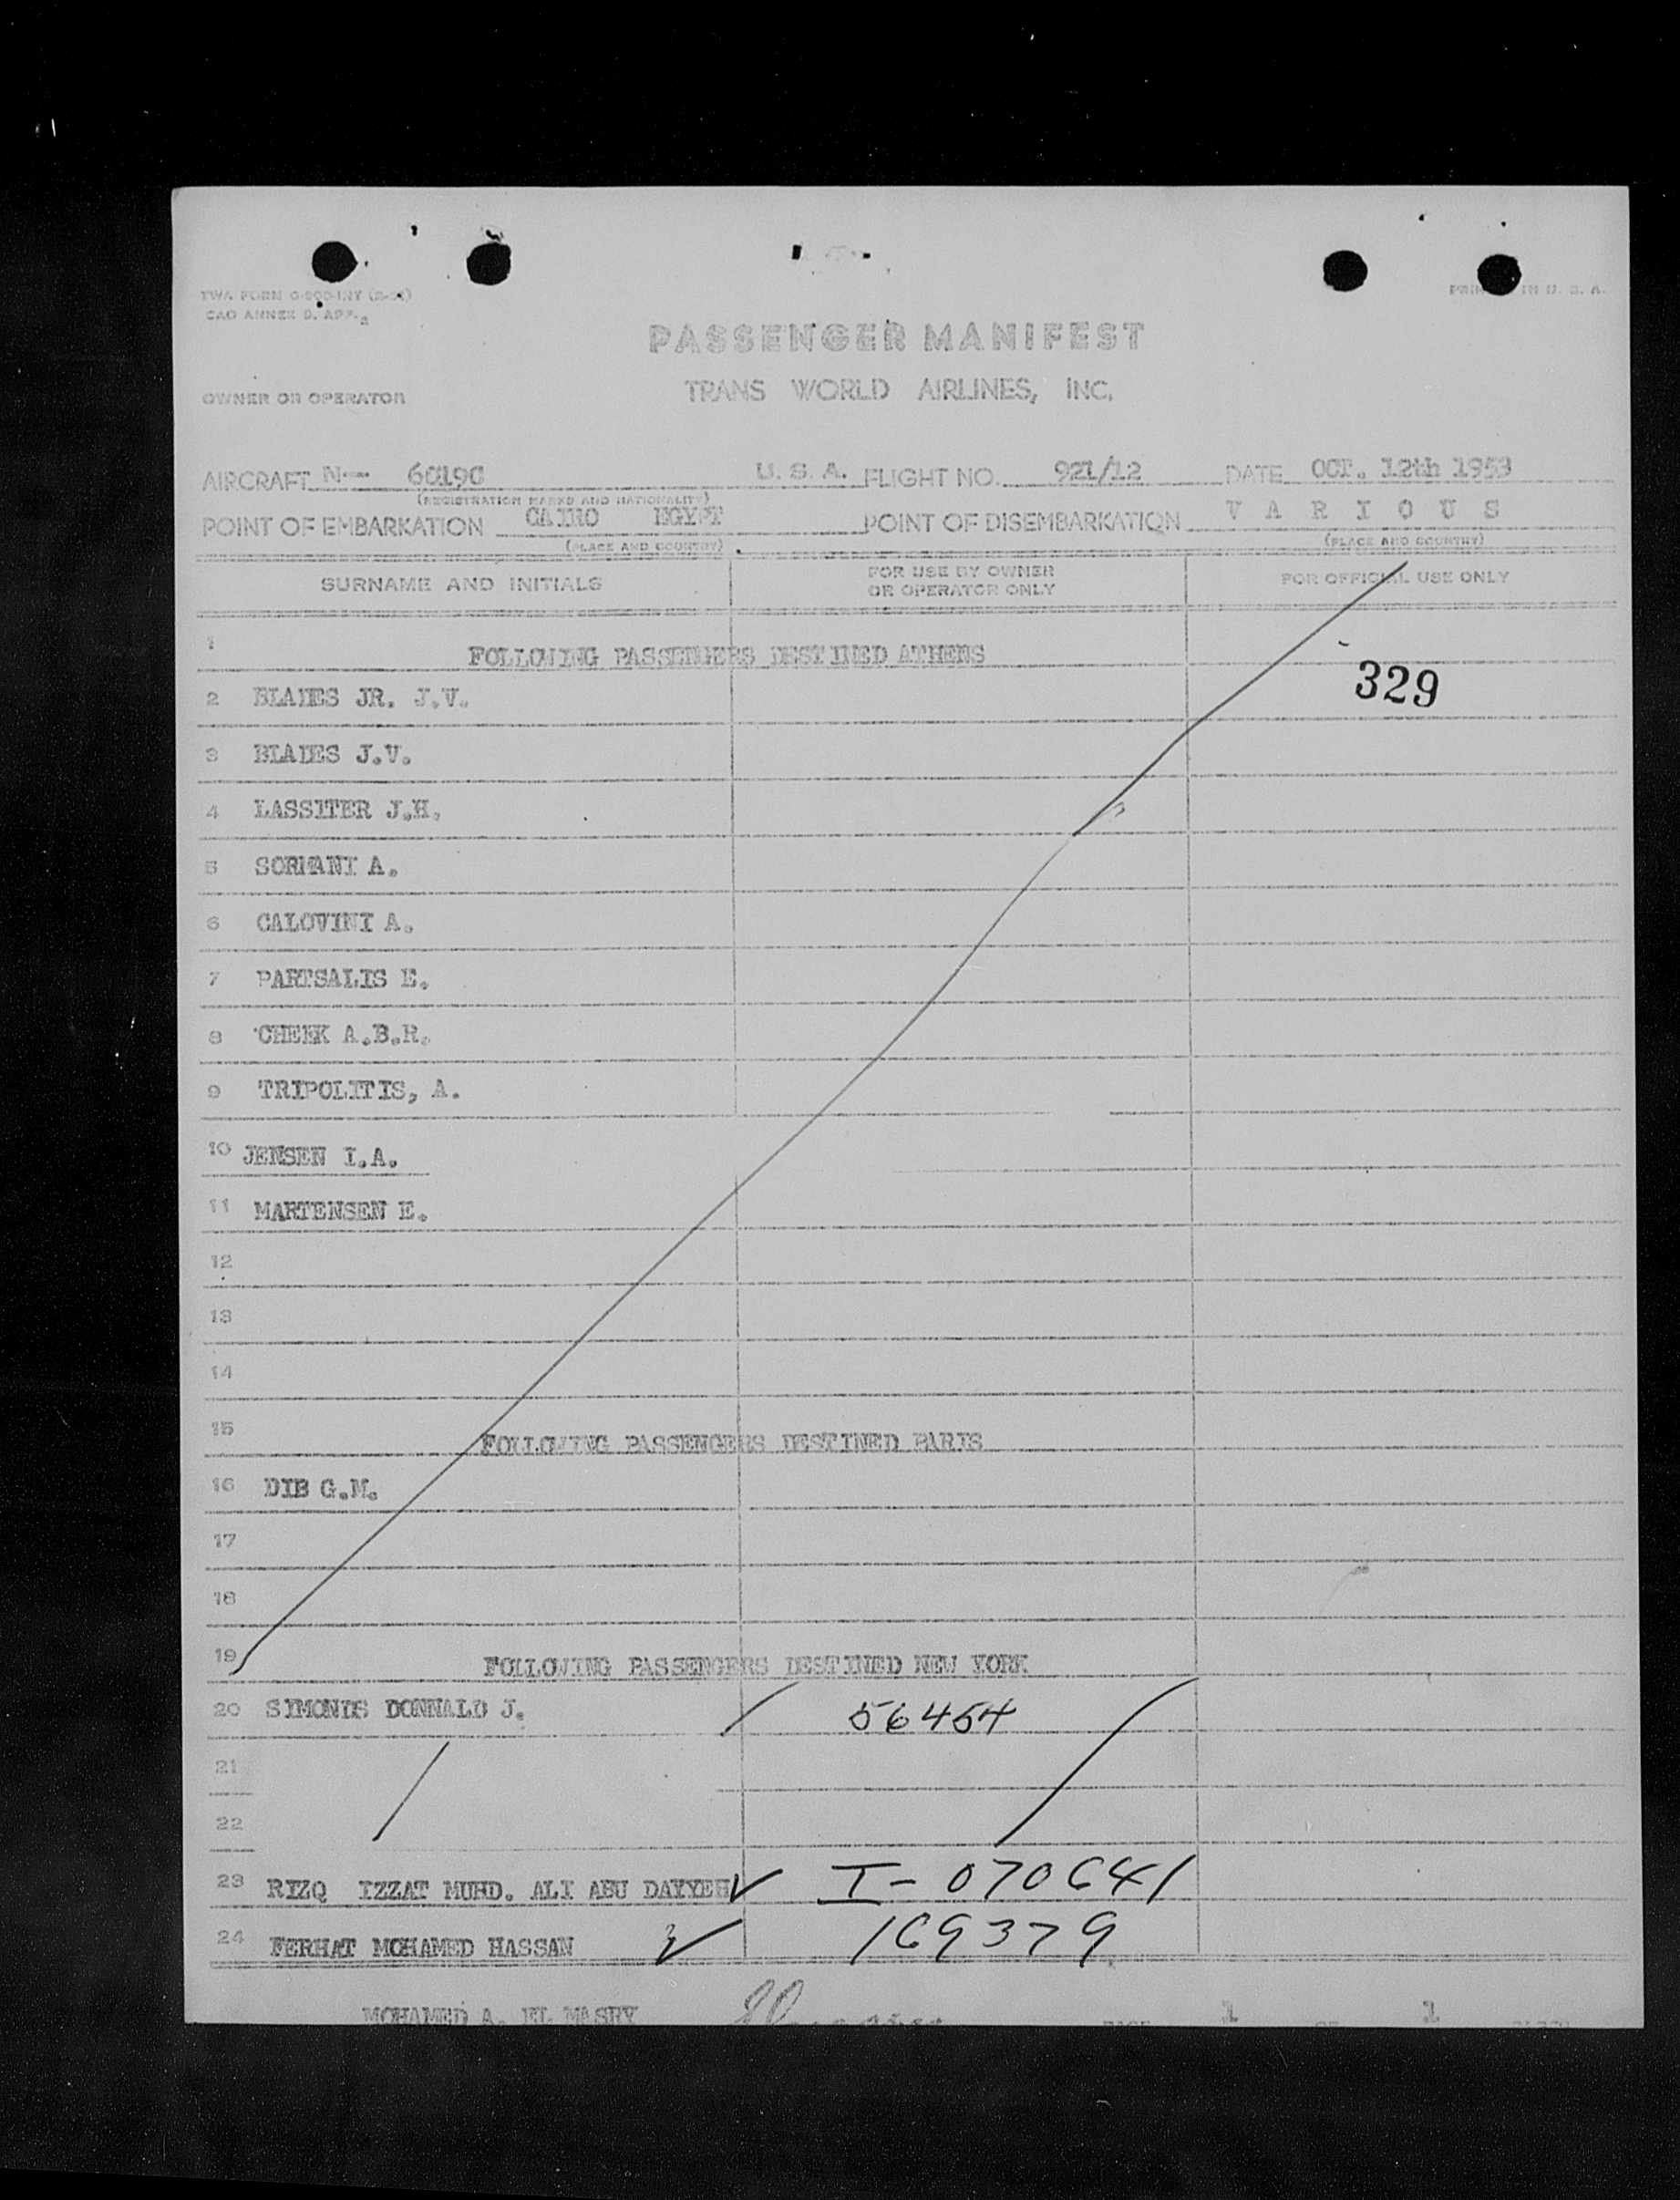 PASSENGER MANIFEST
OWNER OR OPERATOR TRANS WORLD AIRLINES, INC.
AIRCRAFT N-- U. S. A. FLIGHT NO. 921/12 DATE OCT. 12th 1953
(REGISTRATION MARKS AND NATIONALITY)
POINT OF EMBARKATION CAIRO EGYPT POINT OF DISEMBARKATION V A R I O U S
(PLACE AND COUNTRY) (PLACE AND COUNTRY)
SURNAME AND INITIALS FOR USE BY OWNER OR OPERATOR ONLY FOR OFFICIAL USE ONLY
1 FOLLOWING PASSENGERS DESTINED ATHENS
329
2 BLADES JR. J.V.
3 BLADES J.V.
4 LASSITER J.H.
5 SORMANI A.
6 CALOVINI A.
7 PARTSALIS E.
8 CHEEK A.B.R.
9 TRIPOLITIS, A.
10 JENSEN I.A.
11 MARTENSEN E.
12
13
14
15 FOLLOWING PASSENGERS DESTINED PARIS
16 DIB G.M.
17
18
19 FOLLOWING PASSENGERS DESTINED NEW YORK
20 SIMONDS DONNALD J. 56454
21
22
23 RIZQ IZZAT MUHD. ALI ABU DAYYEH I-070641
24 FERHAT MOHAMED HASSAN 169379
MOHAMED A. EL MASRY 1 1